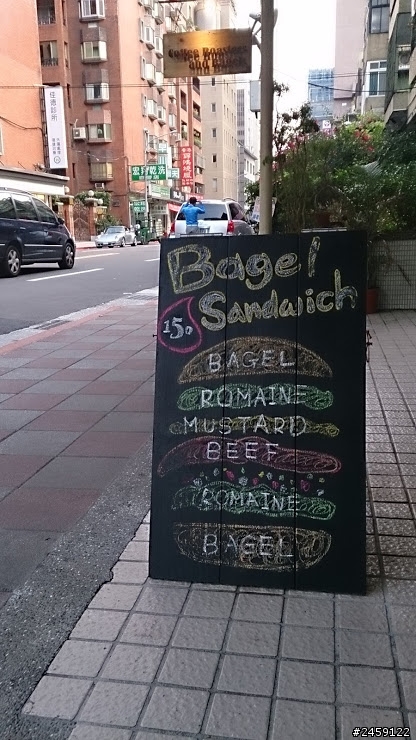 Coffee Roasters
佳德診所
宏程乾洗
Bagel
Sandwich
150
BAGEL
ROMAINE
MUSTARD
BEEF
ROMAINE
BAGEL
#2459122